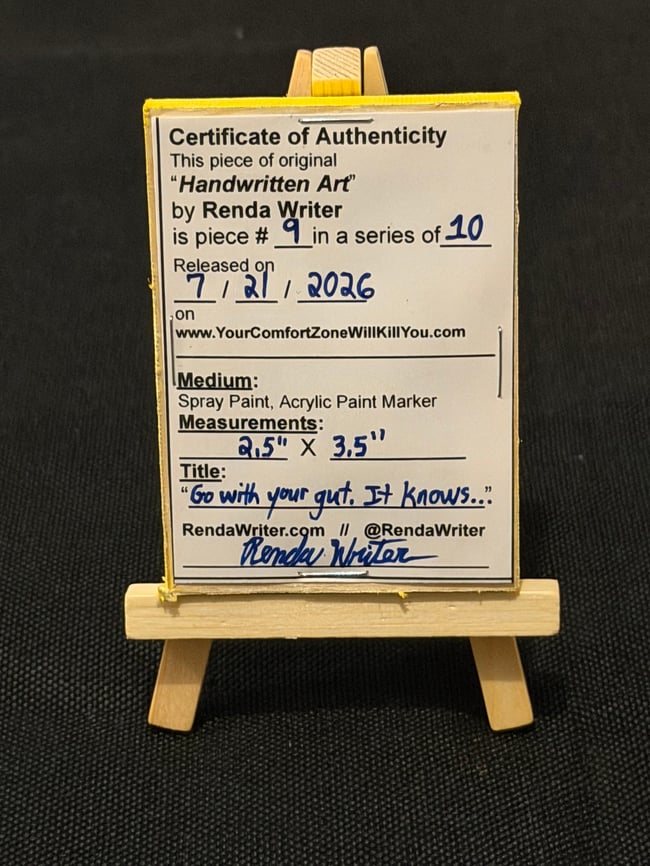 Certificate of Authenticity
This piece of original
“Handwritten Art”
by Renda Writer
is piece # 9 in a series of 10
Released on
7 / 21 / 2026
on
www.YourComfortZoneWillKillYou.com
Medium:
Spray Paint, Acrylic Paint Marker
Measurements:
2.5" X 3.5"
Title:
“Go with your gut. It knows...”
RendaWriter.com // @RendaWriter
Renda Writer